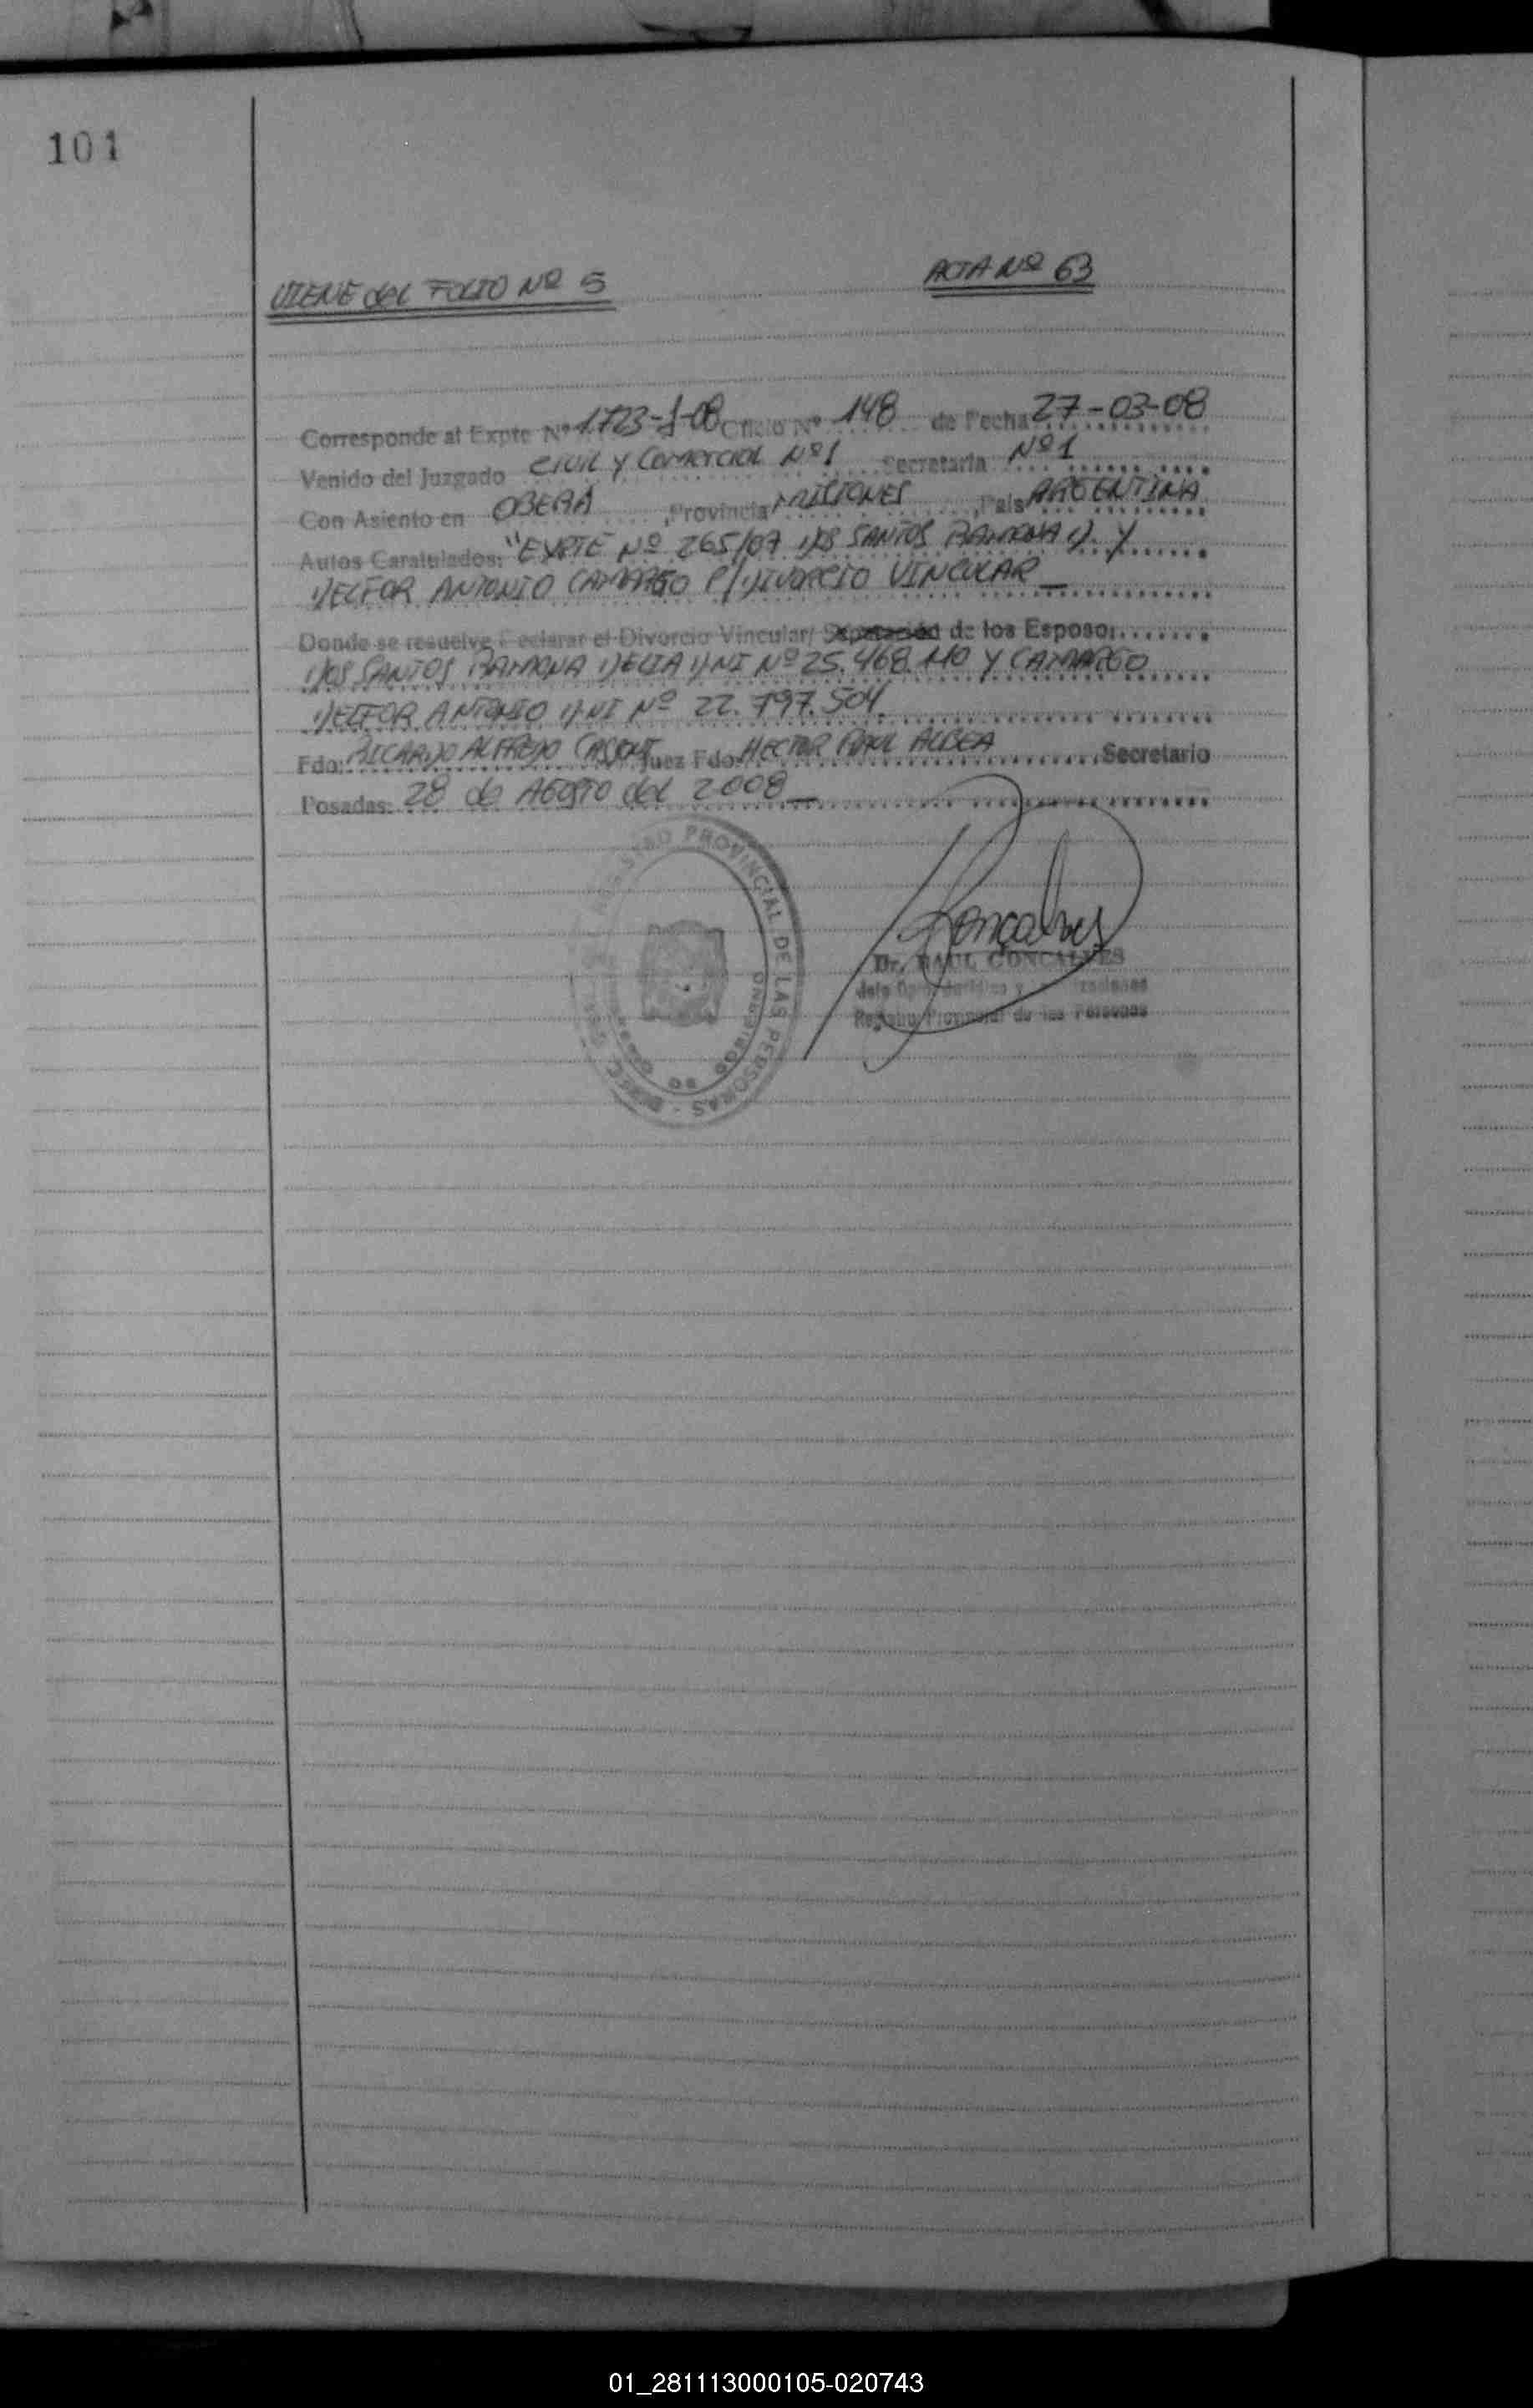 101
VIENE del FOLIO Nº 5
ACTA Nº 63
Corresponde al Expte Nº 1.723-J-08 Oficio Nº 148 de Fecha 27-03-08
Venido del Juzgado CIVIL y Comercial Nº1 Secretaria Nº1
Con Asiento en OBERA ,Provincia MISIONES ,Pais ARGENTINA
Autos Caratulados: "EXPTE Nº 265/07 DOS SANTOS RAMONA D. Y
DELFOR ANTONIO CAMARGO P/DIVORCIO VINCULAR
Donde se resuelve Declarar el Divorcio Vincular/ Separación de los Esposos
DOS SANTOS RAMONA DELIA DNI Nº 25.468.110 Y CAMARGO
DELFOR ANTONIO DNI Nº 22.797.504.
Fdo: RICARDO ALFREDO Juez Fdo: HECTOR RAUL ALBEA Secretario
Posadas: 28 de AGOSTO del 2008
REGISTRO PROVINCIAL DE LAS PERSONAS
Gonçalves
Dr. RAUL GONCALVES
Registro Provincial de las Personas
01_281113000105-020743